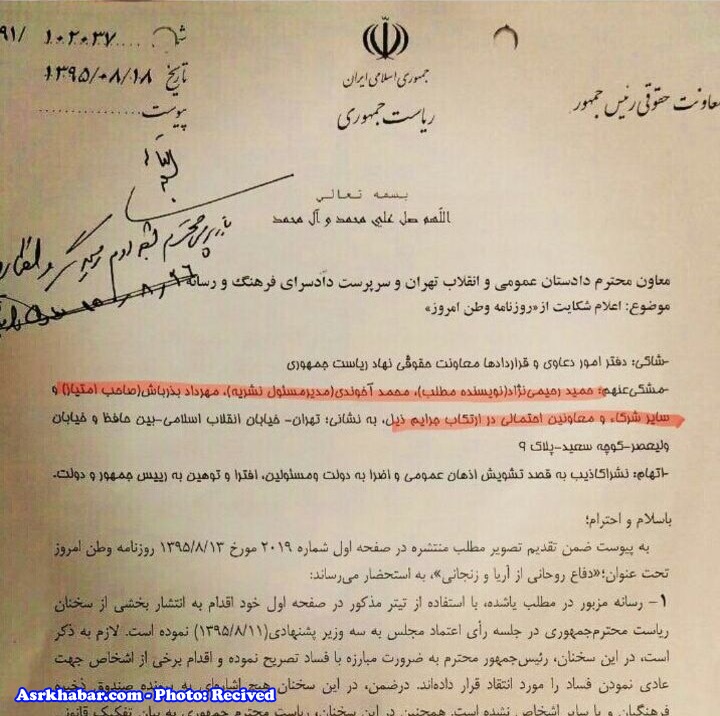 ۹۱/ ۱۰۲۰۳۷ شماره
تاریخ ۱۳۹۵/۰۸/۱۸
پیوست
جمهوری اسلامی ایران
ریاست جمهوری
معاونت حقوقی رئیس جمهور
بسمه تعالی
اللهم صل علی محمد و آل محمد
معاون محترم دادستان عمومی و انقلاب تهران و سرپرست دادسرای فرهنگ و رسانه
موضوع: اعلام شکایت از «روزنامه وطن امروز»
-شاکی: دفتر امور دعاوی و قراردادها معاونت حقوقی نهاد ریاست جمهوری
-مشکی‌عنهم: حمید رحیمی‌نژاد(نویسنده مطلب)، محمد آخوندی(مدیرمسئول نشریه)، مهرداد بذرپاش(صاحب امتیاز) و
سایر شرکاء و معاونین احتمالی در ارتکاب جرایم ذیل، به نشانی: تهران- خیابان انقلاب اسلامی-بین حافظ و خیابان
ولیعصر-کوچه سعید-پلاک ۹
-اتهام: نشراکاذیب به قصد تشویش اذهان عمومی و اضرا به دولت ومسئولین، افترا و توهین به رییس جمهور و دولت.
باسلام و احترام؛
به پیوست ضمن تقدیم تصویر مطلب منتشره در صفحه اول شماره ۲۰۱۹ مورخ ۱۳۹۵/۸/۱۳ روزنامه وطن امروز
تحت عنوان؛«دفاع روحانی از آریا و زنجانی»، به استحضار می‌رساند:
۱- رسانه مزبور در مطلب یادشده، با استفاده از تیتر مذکور در صفحه اول خود اقدام به انتشار بخشی از سخنان
ریاست محترم‌جمهوری در جلسه رأی اعتماد مجلس به سه وزیر پشنهادی(۱۳۹۵/۸/۱۱) نموده است. لازم به ذکر
است، در این سخنان، رئیس‌جمهور محترم به ضرورت مبارزه با فساد تصریح نموده و اقدام برخی از اشخاص جهت
عادی نمودن فساد را مورد انتقاد قرار داده‌اند. درضمن، در این سخنان هیچ اشاره‌ای به پرونده صندوق ذخیره
فرهنگیان و یا سایر اشخاص نشده است. همچنین در این سخنان، ریاست محترم جمهوری به بیان تفکیک قانونی
Asrkhabar.com - Photo: Recived